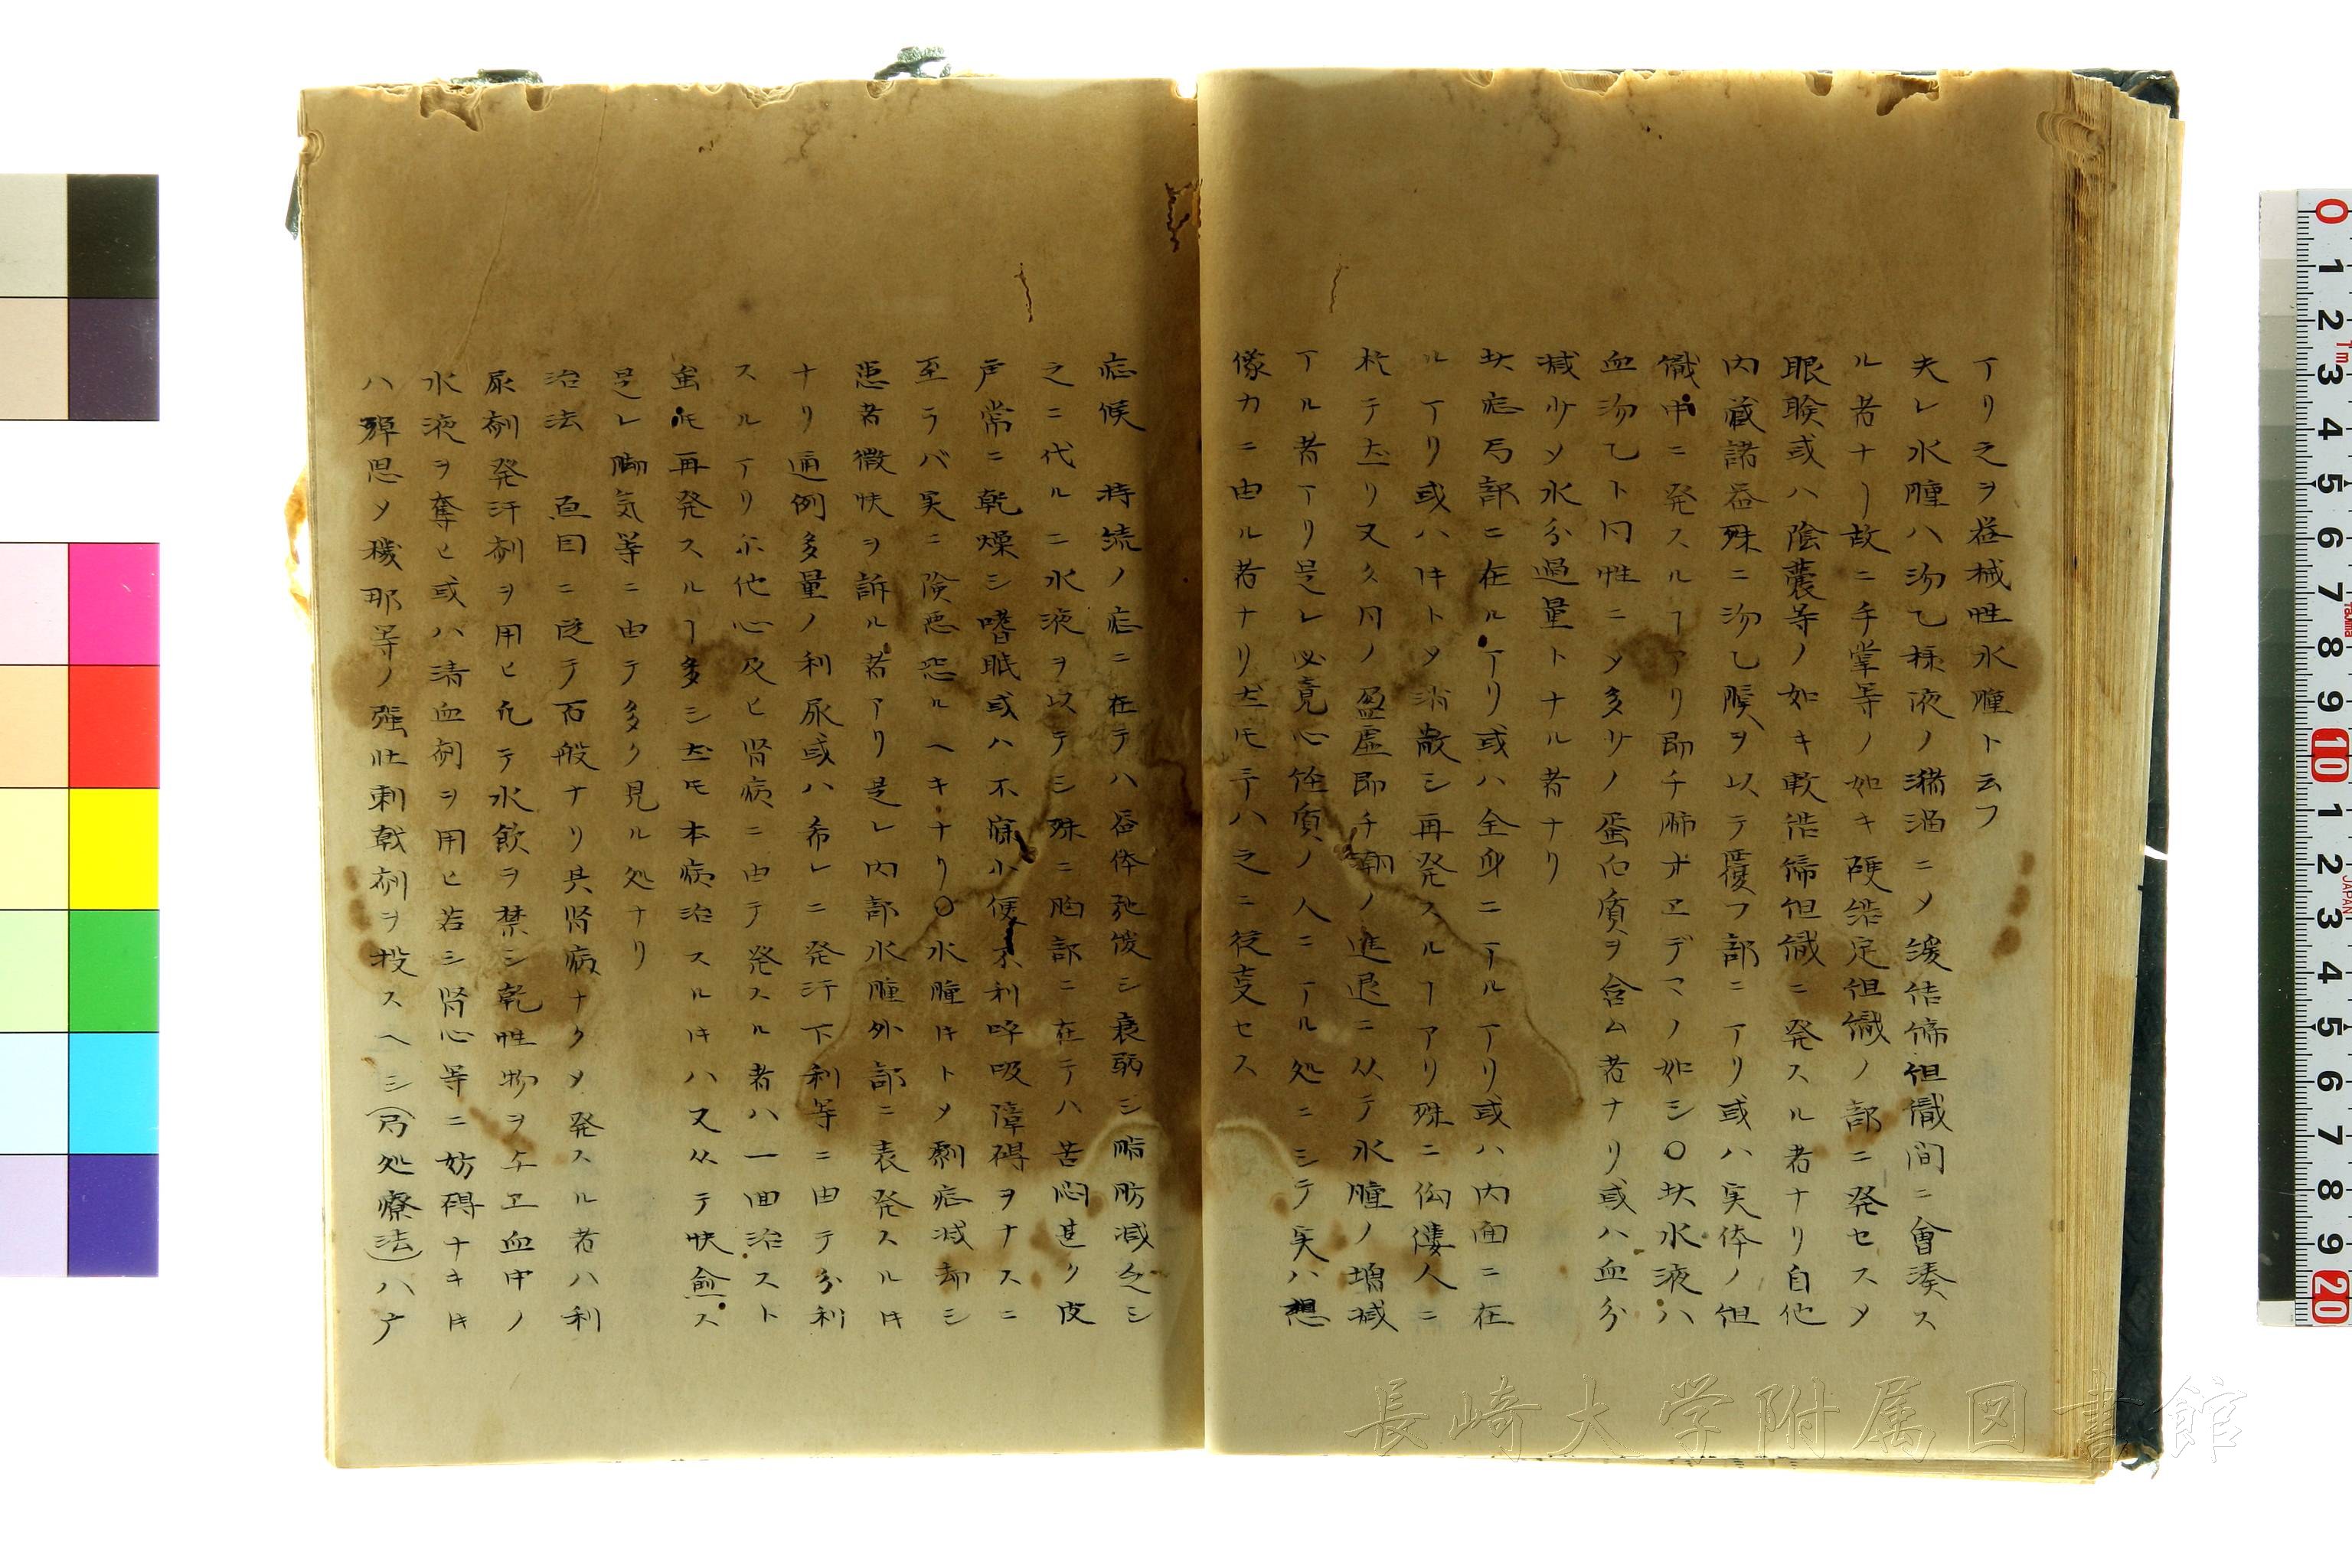 アリ之ヲ器械性水腫ト云フ
夫レ水腫ハ沕乙様液ノ瀦溜ニメ緩佶締但織間ニ會湊ス
ル者ナリ故ニ手掌等ノ如キ硬佶定但織ノ部ニ発セスメ
眼瞼或ハ陰嚢等ノ如キ軟佶締但織ニ発スル者ナリ自他
内蔵諸器殊ニ沕乙膜ヲ以テ覆フ部ニアリ或ハ実体ノ但
織中ニ発スルヿアリ即チ肺オエデマノ如シ○此水液ハ
血沕乙ト同性ニメ多少ノ蛋白質ヲ含ム者ナリ或ハ血分
減少メ水分過量トナル者ナリ
此症局部ニ在ルヿアリ或ハ全身ニアルアリ或ハ内面ニ在
ルアリ或ハ时トメ消散シ再発スルヿアリ殊ニ佝僂人ニ
於テ然リ又久月ノ盈虚即チ潮ノ進退ニ从テ水腫ノ増減
アル者アリ是レ必竟心性質ノ人ニアル処ニシテ実ハ想
像力ニ由ル者ナリ然モ予ハ之ニ従支セス
症候 持続ノ症ニ在テハ器体弛緩シ衰弱シ脂肪減乏シ
之ニ代ルニ水液ヲ以テシ殊ニ胸部ニ在テハ苦悶甚ク皮
戸常ニ乾燥シ嗜眠或ハ不寐小便不利呼吸障碍ヲナスニ
至ラバ実ニ険悪恐ルヘキナリ○水腫时トメ劇症減却シ
患者微快ヲ訴ル者アリ是レ内部水腫外部ニ表発スル时
ナリ通例多量ノ利尿或ハ希レニ発汗下利等ニ由テ分利
スルアリ尓他心及ヒ肾病ニ由テ発スル者ハ一回治スト
虽𪜈再発スルヿ多シ然モ本病治スル时ハ又从テ快愈ス
是レ脚気等ニ由テ多ク見ル処ナリ
治法 原因ニ従テ百般ナリ其肾病ナクメ発スル者ハ利
尿剤発汗剤ヲ用ヒ凢テ水飲ヲ禁シ乾性物ヲ与ヱ血中ノ
水液ヲ奪ヒ或ハ清血剤ヲ用ヒ若シ肾心等ニ妨碍ナキ时
ハ弾思メ機那等ノ强壮刺戟剤ヲ投スヘシ(局処療法)ハ户
長崎大学附属図書館